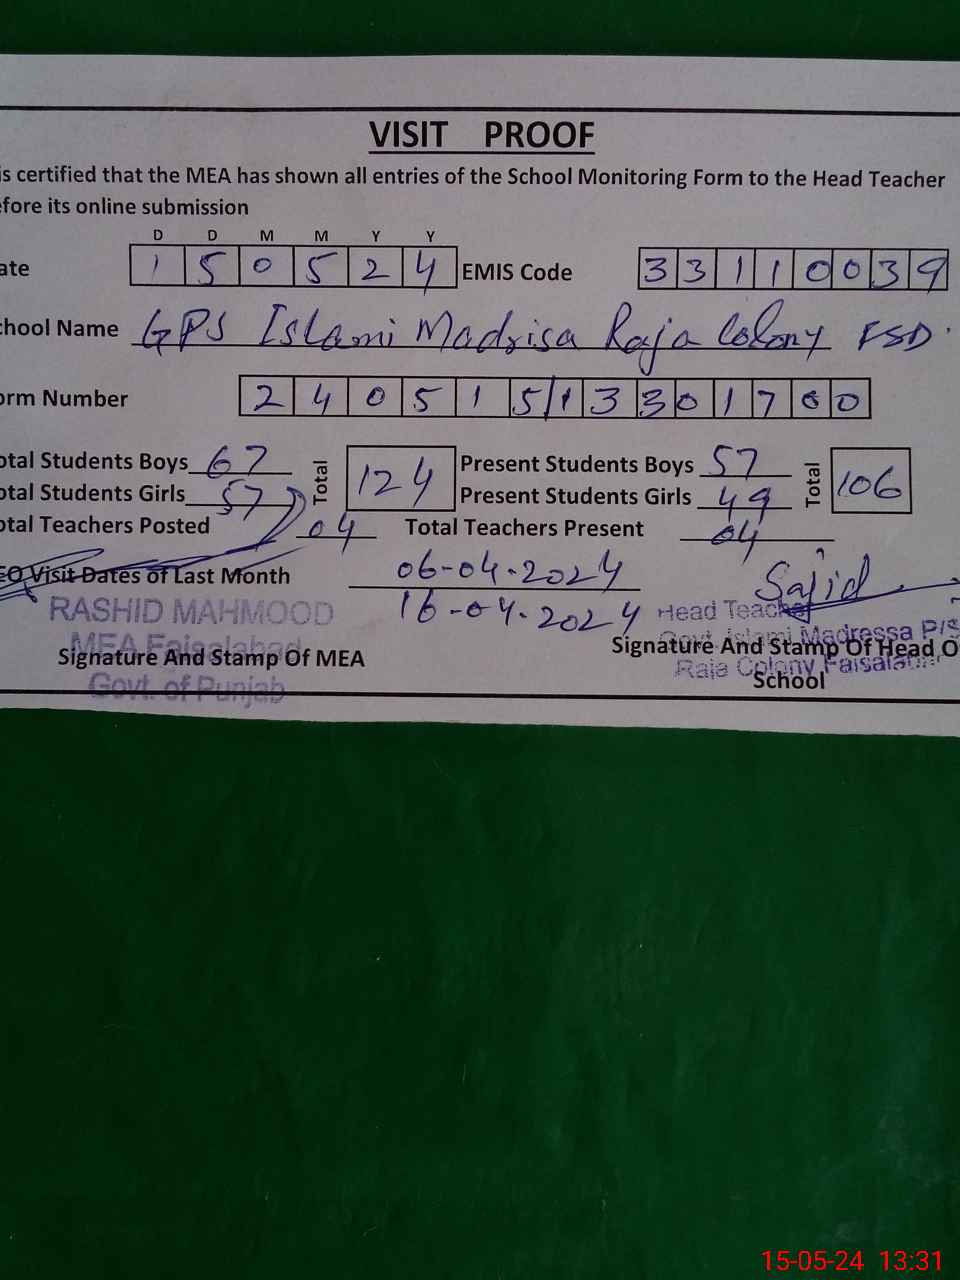 VISIT PROOF
is certified that the MEA has shown all entries of the School Monitoring Form to the Head Teacher
efore its online submission
D D M M Y Y
ate 1 5 0 5 2 4 EMIS Code 3 3 1 1 0 0 3 9
chool Name GPS Islami Madrisa Raja Colony FSD
orm Number 2 4 0 5 1 5 1 3 3 0 1 7 0 0
otal Students Boys 67 Total 124 Present Students Boys 57 Total 106
otal Students Girls 57 Present Students Girls 49
otal Teachers Posted 04 Total Teachers Present 04
EO Visit Dates of Last Month 06-04-2024
16-04-2024
Sajid
RASHID MAHMOOD
MEA Faisalabad
Govt. of Punjab
Signature And Stamp Of MEA
Head Teacher
Govt. Islami Madressa P/S
Raja Colony Faisalabad
Signature And Stamp Of Head O
School
15-05-24 13:31